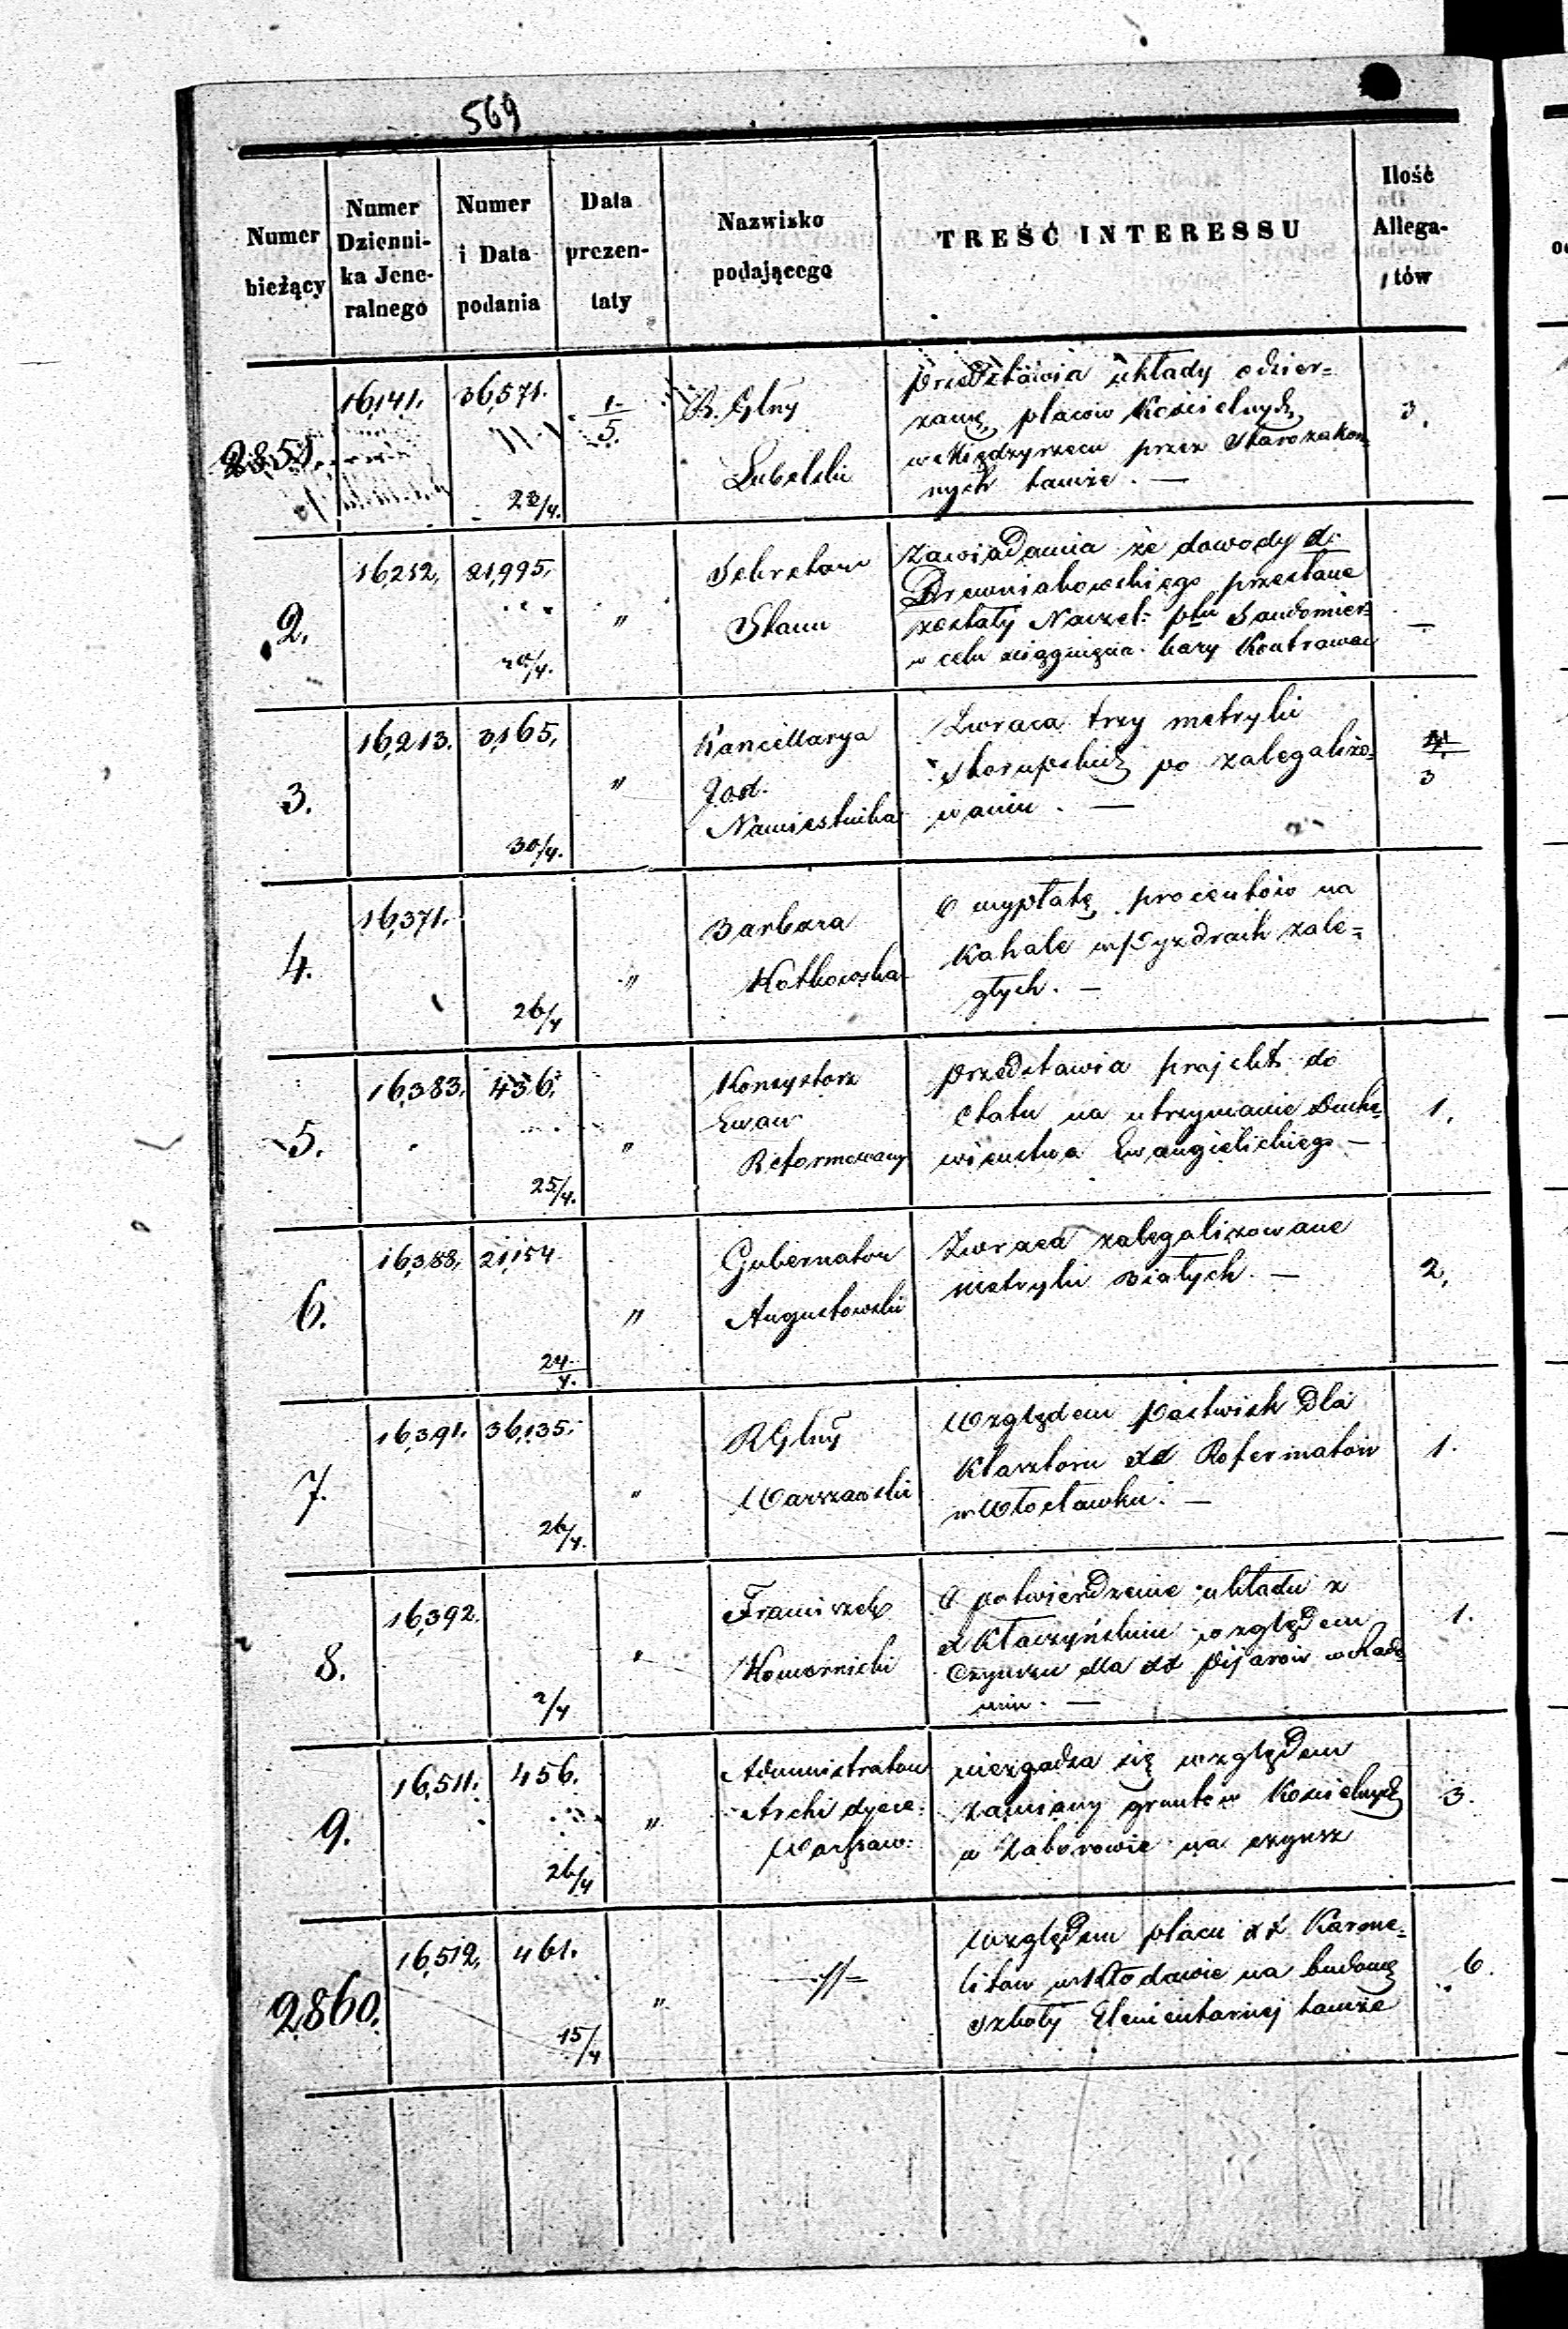 569
Numer bieżący
Numer Dzienni-
ka Jene-
ralnego
Numer i Data podania
Data prezen-
taty
Nazwisko podającego
TREŚĆ INTERESSU
Ilość Allega-
tów
2851.
16,141.
36,571.
23/4.
1/5.
R. Glny
Lubelski
przedstawia układy o dzier=
żawę placów Kościelnych
w Międzyrzecu przez Starozakon
nych tamże. —
3.
2.
16,212,
21,995.
"
Sekretarz
Stanu
Zawiadamia że dowody
Drewniakowskiego przesłane
zostały Naczel: ptu Sandomier=
w celu ściągnięcia kary
—
3.
16,213.
3,165,
30/4.
"
Kancellarya
Namiestnika
Zwraca trzy metryki
Skorupskich po zalegalizo=
waniu. —
3
4.
16,371.
26/4
"
Barbara
Kotkowska
O wypłatę procentów na
Kahale w Pyzdrach zale=
głych. —
5.
16,383.
436.
25/4.
"
Konsystorz
Ewan
Reformowany
przedstawia projekt do
Etatu na utrzymanie Ducho
wieństwa Ewangielickiego —
1.
6.
16,388,
21,154.
24/4.
"
Gubernator
Augustowski
Zwraca zalegalizowane
metryki Białych. —
2,
7.
16,391.
36,135.
26/4.
"
R Glny
Warszawski
Względem pastwisk dla
Klasztoru XX Reformatów
w Włocławku. —
1.
8.
16,392.
2/4
"
Franciszek
Komornicki
O potwierdzenie układu z
X Kłaczyńskim względem
Czynszu dla XX Pijarów w Rado
miu. —
1.
9.
16,511.
456.
26/4
"
Administrator
Archi dyece:
Warszaw:
niezgadza się względem
zamiany gruntów Kościelnych
w Zaborowie na czynsz
3.
2860.
16,512,
461.
15/4
"
—//—
Względem placu XX Karme=
litów w Kłodawie na budowę
szkoły Elementarnej tamże
6.